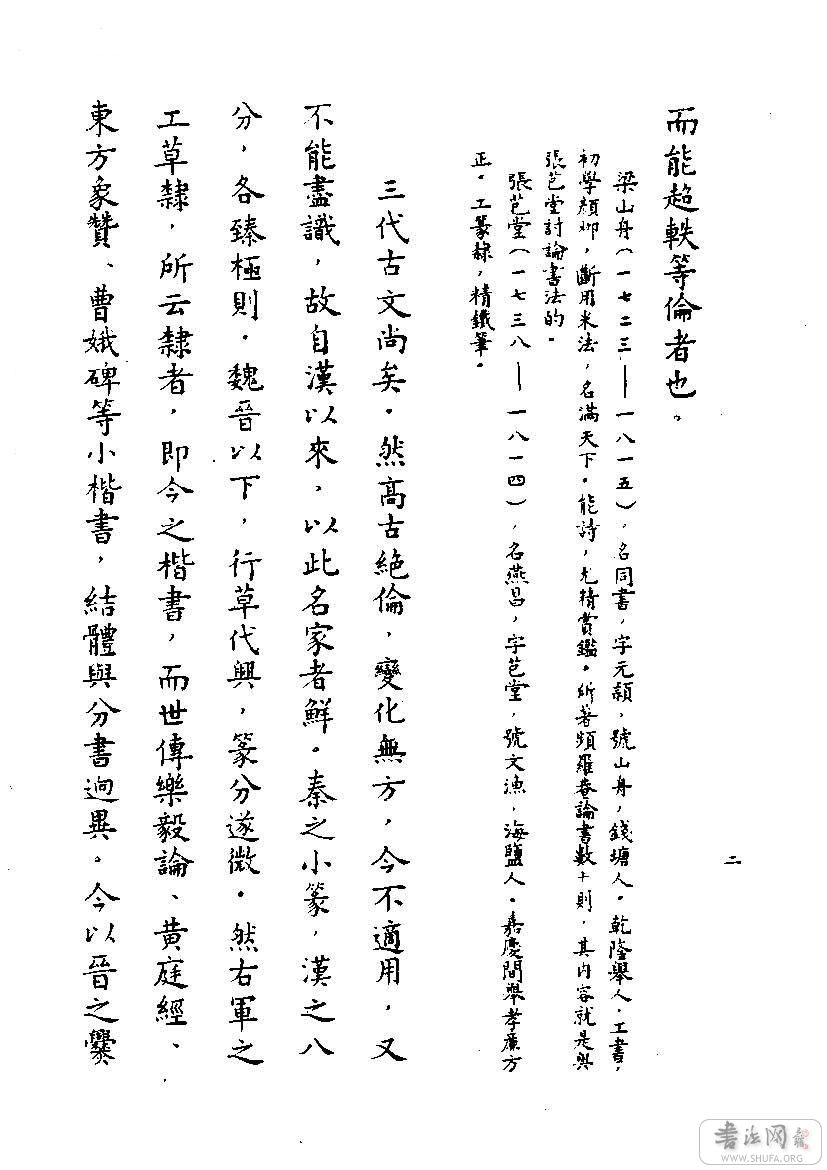 而能超軼等倫者也。
梁山舟(一七二三——一八一五),名同書,字元頴,號山舟,錢塘人。乾隆舉人。工書,
初學顏柳,斷用米法,名滿天下。能詩,尤精賞鑑。所著頻羅菴論書數十則,其內容就是與
張芑堂討論書法的。
張芑堂(一七三八——一八一四),名燕昌,字芑堂,號文漁,海鹽人。嘉慶間舉孝廉方
正。工篆隸,精鐵筆。
三代古文尚矣。然高古絕倫,變化無方,今不適用,又
不能盡識,故自漢以來,以此名家者鮮。秦之小篆,漢之八
分,各臻極則。魏晉以下,行草代興,篆分遂微。然右軍之
工草隸,所云隸者,即今之楷書,而世傳樂毅論、黃庭經、
東方象贊、曹娥碑等小楷書,結體與分書迥異。今以晉之爨
二
書法网
WWW.SHUFA.ORG